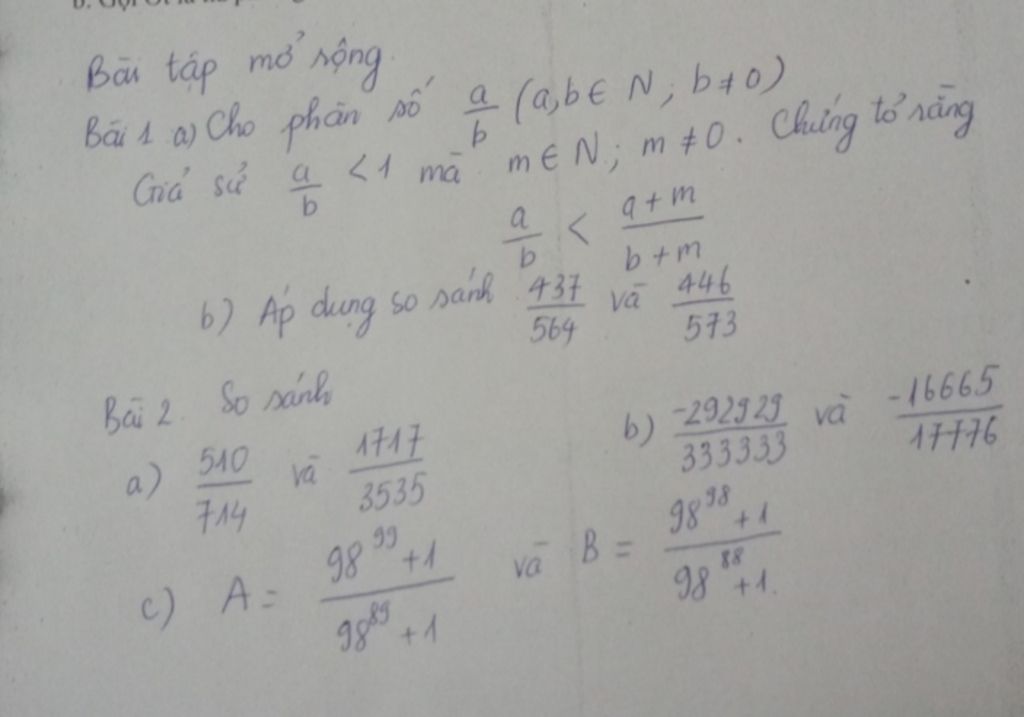 Bài tập mở rộng
Bài 1 a) Cho phân số a/b (a,b ∈ N; b ≠ 0)
Giả sử a/b < 1 mà m ∈ N; m ≠ 0. Chứng tỏ rằng
a/b < (a+m)/(b+m)
b) Áp dụng so sánh 437/564 và 446/573
Bài 2. So sánh
a) 510/714 và 1717/3535 b) -292929/333333 và -16665/17776
c) A = (98^99+1)/(98^89+1) và B = (98^98+1)/(98^88+1).